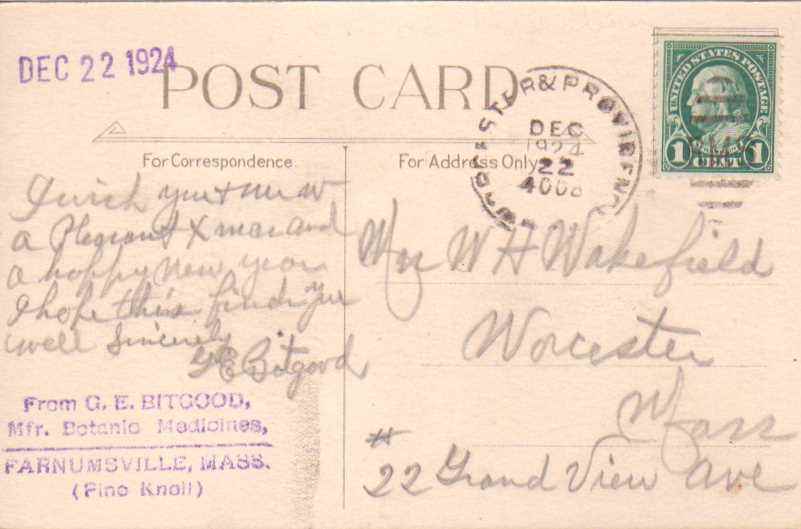 DEC 22 1924
POST CARD
WORCESTER & PROVIDENC
DEC
1924
22
400
UNITED STATES POSTAGE
1 CENT 1
For Correspondence.
For Address Only.
I wish you & Mr W
a Pleasant Xmas and
a happy New year
I hope this finds you
well Sincerely
G E Bitgood
Mrs W H Wakefield
Worcester
Mass
# 22 Grand View Ave
From G. E. BITGOOD,
Mfr. Botanic Medicines,
FARNUMSVILLE, MASS.
(Pine Knoll)